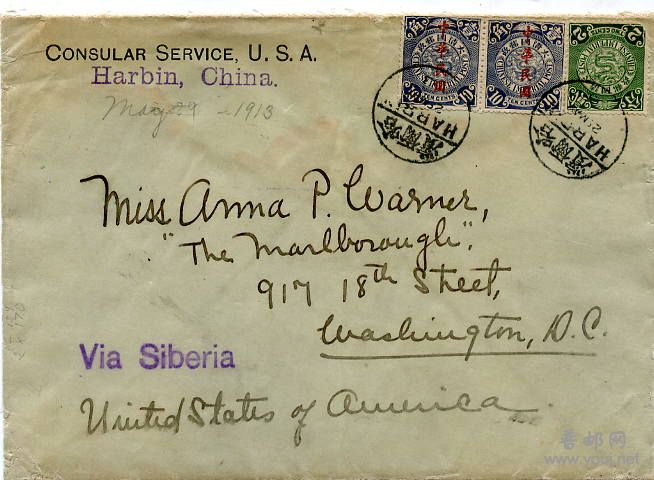 CONSULAR SERVICE, U. S. A.
Harbin, China.
May 29 - 1913
中華民國
中華民國
HARB
HARB
哈爾賓
哈爾賓
Miss Anna P. Warner,
"The Marlborough",
917 18th Street,
Washington, D.C.
Via Siberia
United States of America
普邮网
www.yoja.net